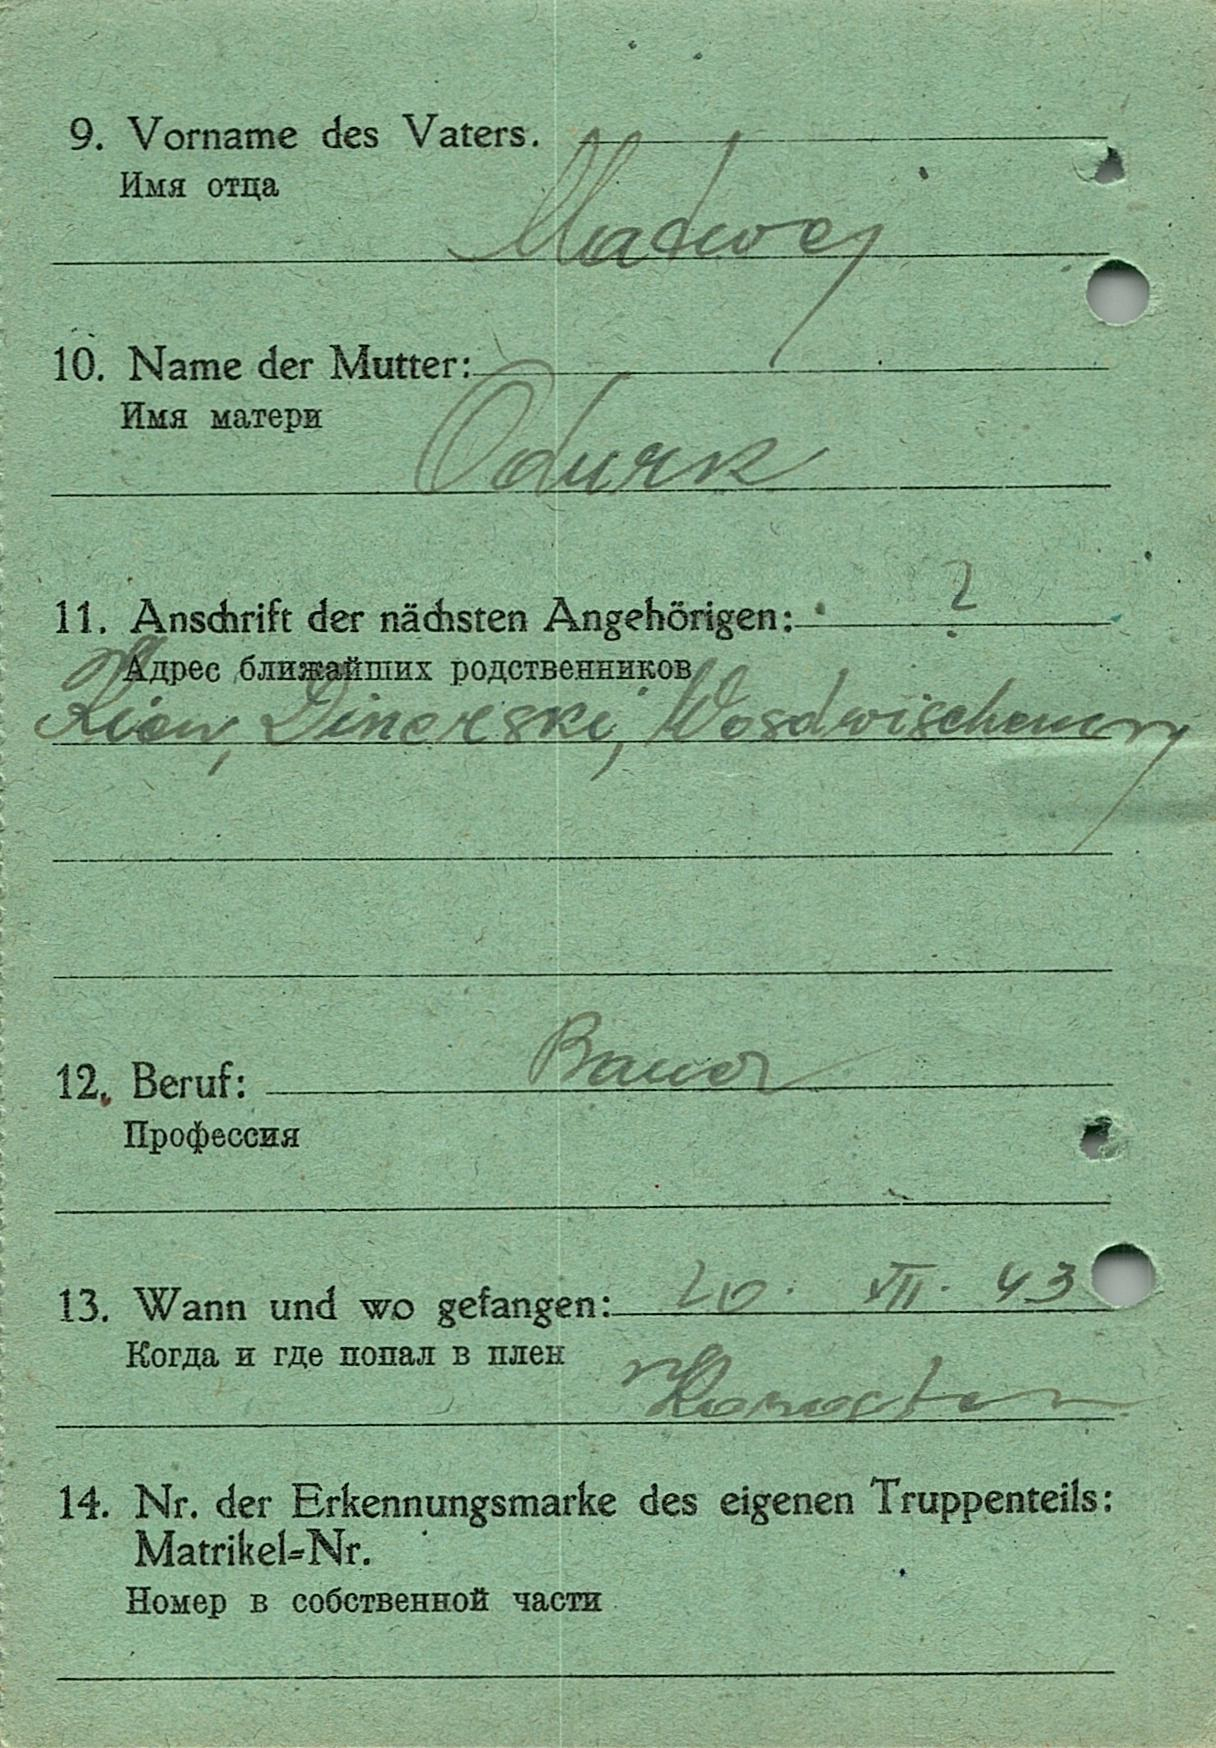 9. Vorname des Vaters.
Имя отца
Matwej
10. Name der Mutter:
Имя матери
Odurk
11. Anschrift der nächsten Angehörigen: ?
Адрес ближайших родственников
Kiew, Dimerski,
12. Beruf: Bauer
Профессия
13. Wann und wo gefangen: 20. VII. 43
Когда и где попал в плен
14. Nr. der Erkennungsmarke des eigenen Truppenteils:
Matrikel=Nr.
Номер в собственной части